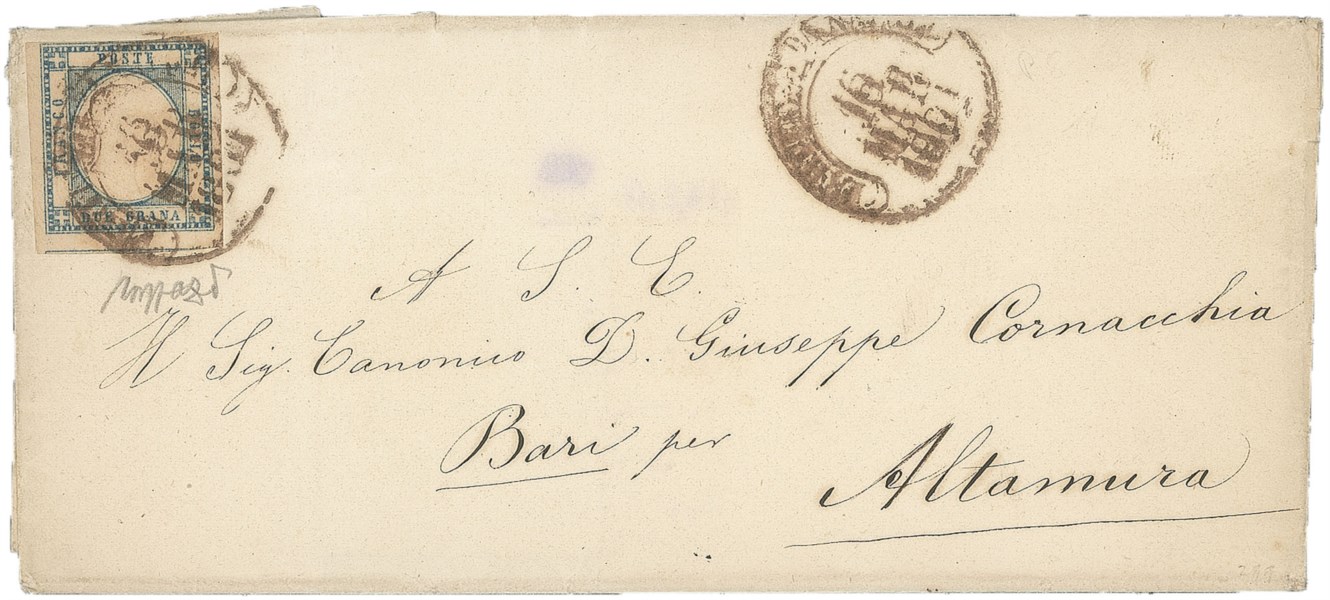 POSTE
FRANCO
DUE GRANA
16
MAR
1861
A S. E.
Il Sig. Canonico D. Giuseppe Cornacchia
Bari per
Altamura